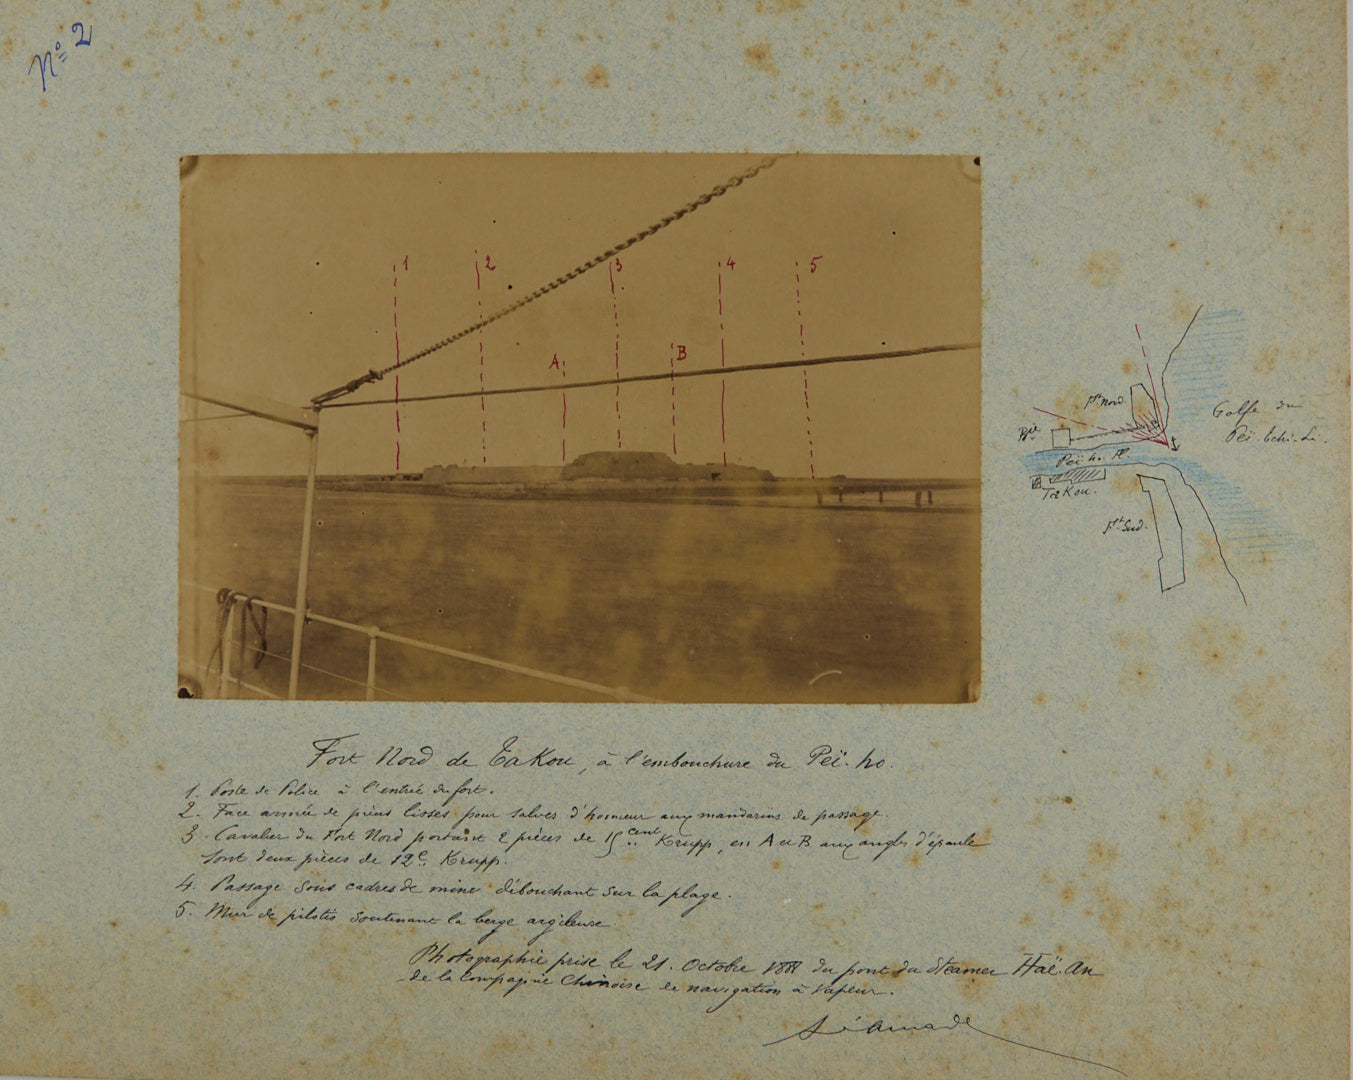 Nº 2
1 2 3 4 5
A B
Fort Nord
Golfe du
Peï-tchi-Li.
Peï-ho. R.
TaKou.
Fort Sud.
Fort Nord de TaKou, à l'embouchure du Peï-ho.
1. Poste de Police à l'entrée du fort.
2. Face armée de pièces lisses pour salves d'honneur aux mandarins de passage.
3. Cavalier du Fort Nord portant 2 pièces de 15 cent. Krupp, en A et B aux angles d'épaule
sont deux pièces de 12c. Krupp.
4. Passage sous cadres de mine débouchant sur la plage.
5. Mur de pilotis soutenant la berge argileuse.
Photographie prise le 21. Octobre 1888 du pont du Steamer Haï-An
de la Compagnie Chinoise de navigation à vapeur.